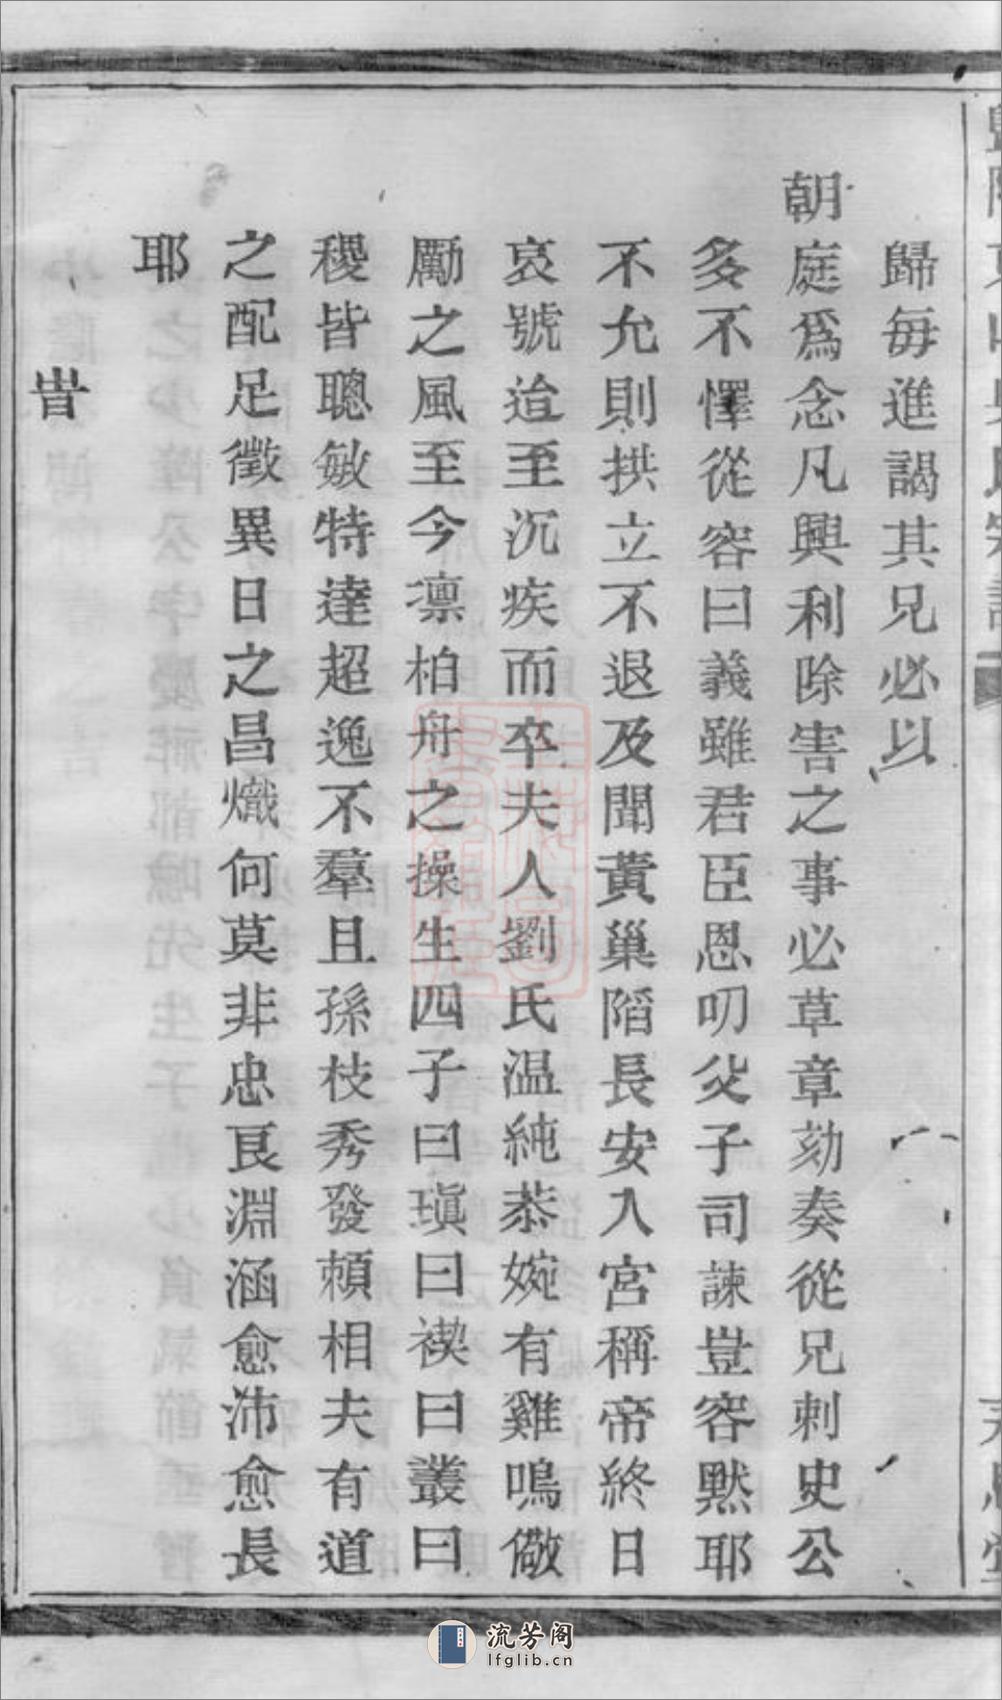 歸每進謁其兄必以
朝庭爲念凡興利除害之事必草章劾奏從兄刺史公
多不懌從容曰義雖君臣恩叨父子司諫豈容默耶
不允則拱立不退及聞黃巢陷長安入宮稱帝終日
哀號迨至沉疾而卒夫人劉氏温純恭婉有雞鳴儆
勵之風至今凛柏舟之操生四子曰瑱曰禊曰叢曰
稷皆聰敏特達超逸不羣且孫枝秀發賴相夫有道
之配足徵異日之昌熾何莫非忠良淵涵愈沛愈長
耶
旹
流芳阁
lfglib.cn